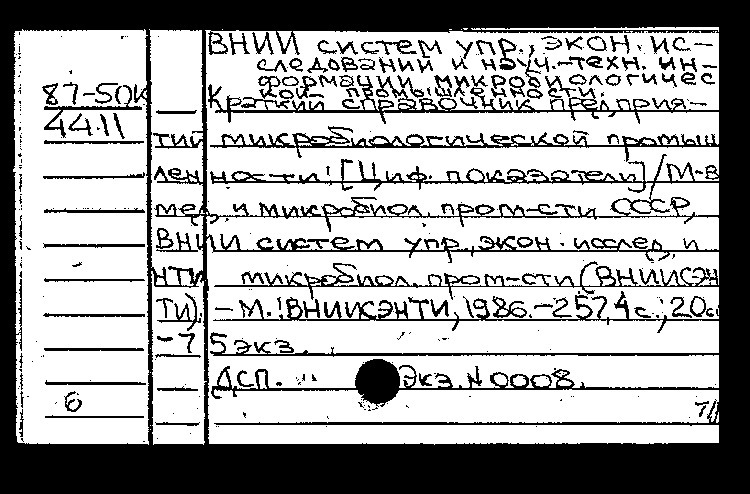 ВНИИ систем упр., экон. ис-
следований и науч.-техн. ин-
формации микробиологичес
кой промышленности.
87-50К Краткий справочник предприя-
44.11
тий микробиологической промыш
ленности: [Циф. показатели] / М-в
мед. и микробиол. пром-сти СССР,
ВНИИ систем упр., экон. исслед. и
НТИ микробиол. пром-сти (ВНИИСЭН
ТИ). - М.: ВНИИСЭНТИ, 1986. - 257,4 с.; 20с
-75 экз.
ДСП. Экз. N 0008.
6